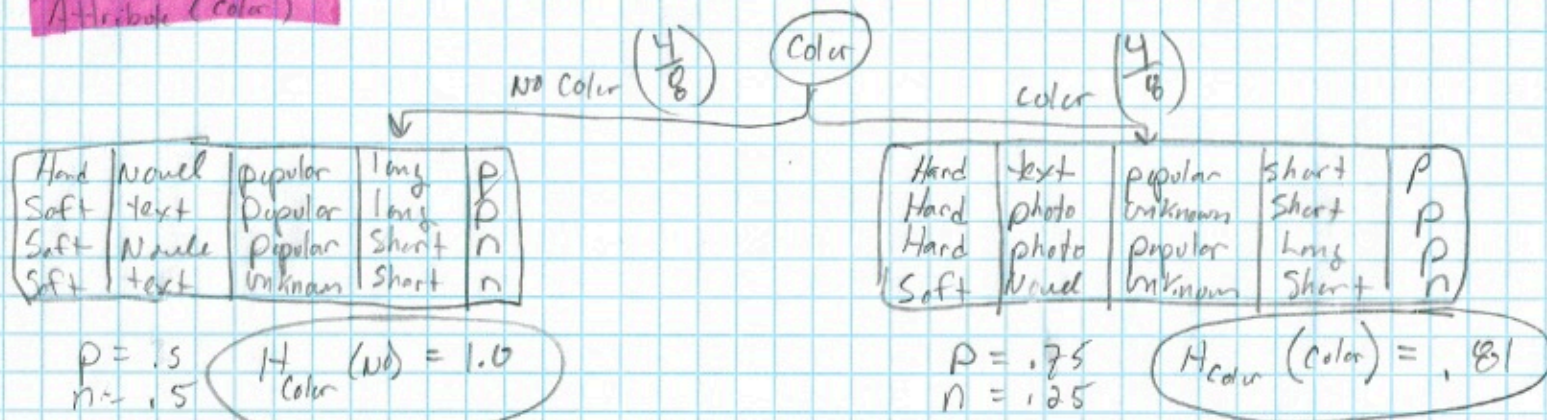 Attribute (Color)
Color
No Color (4/8)
Color (4/8)
Hard Novel popular long p
Soft text Popular long p
Soft Novle Popular Short n
Soft text Unknown Short n
Hard text popular Short p
Hard photo Unknown Short p
Hard photo popular Long p
Soft Novel Unknown Short n
p = .5
n = .5
H Color (No) = 1.0
p = .75
n = .25
H Color (Color) = .81